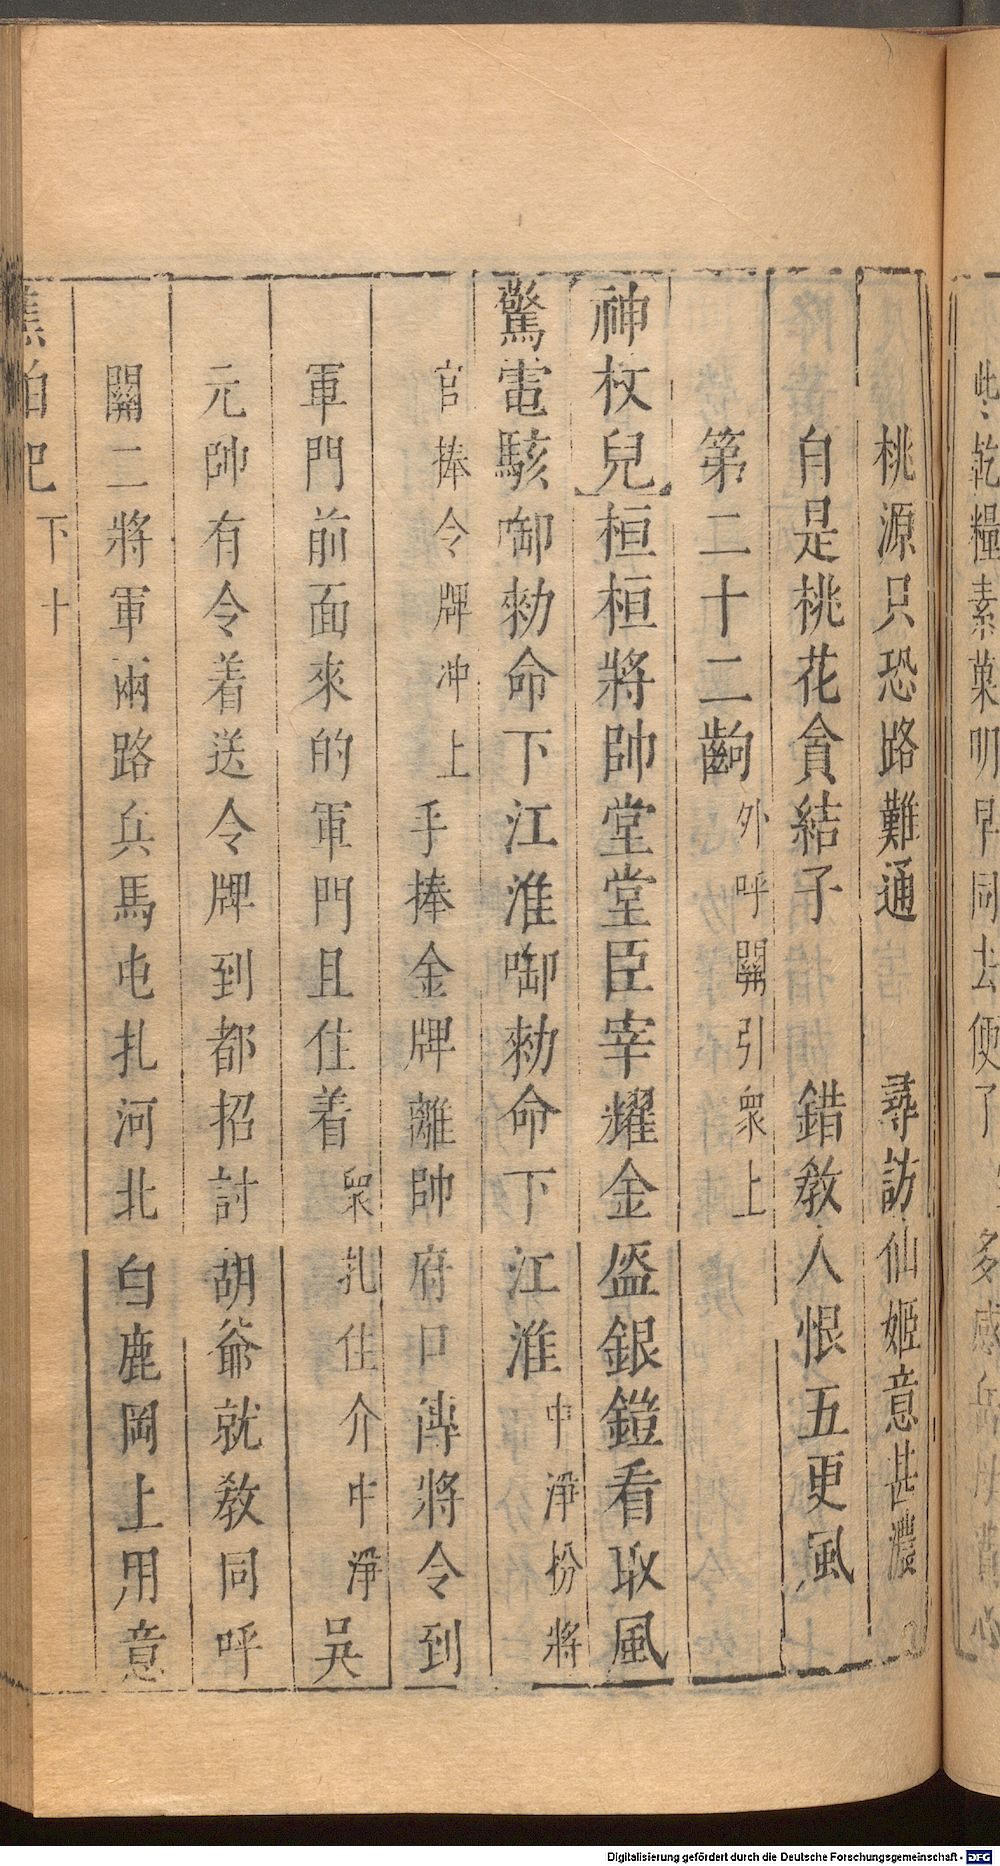 此乾糧素菓明早同去便了
桃源只恐路難通　尋訪仙姬意甚濃
自是桃花貪結子　錯教人恨五更風
第二十二齣 外呼關引衆上
神杖兒桓桓將帥堂堂臣宰耀金盔銀鎧看取風
驚雷駭啣勑命下江淮啣勑命下江淮 中淨扮將
官捧令牌冲上 手捧金牌離帥府口傳將令到
軍門前面來的軍門且住着 衆扎住介中淨 吴
元帥有令着送令牌到都招討胡爺就教同呼
關二將軍兩路兵馬屯扎河北白鹿岡上用意
蕉帕記 下 十
Digitalisierung gefördert durch die Deutsche Forschungsgemeinschaft - DFG